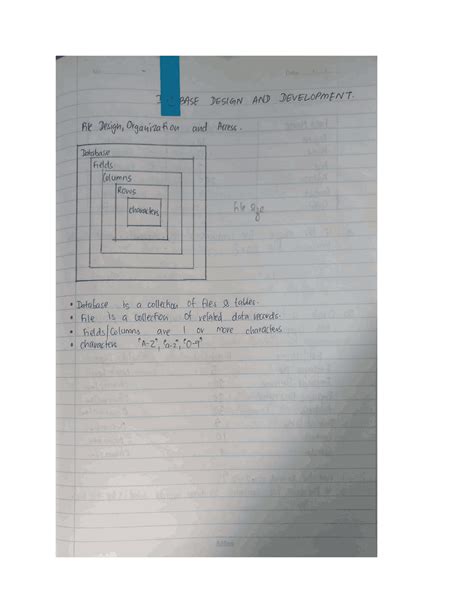 BASE DESIGN AND DEVELOPMENT.
File Design, Organization and Access.
Database
Fields
Columns
Rows
characters
file size
• Database is a collection of files & tables.
• File is a collection of related data records.
• Fields/Columns are 1 or more characters
• characters "A-Z", "a-z", "0-9"